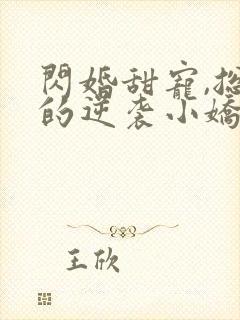 閃婚甜寵,總
的逆袭小嬌
王欣